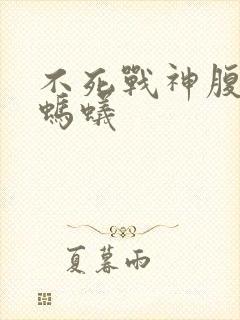 不死戰神腹
螞蟻
夏暮雨